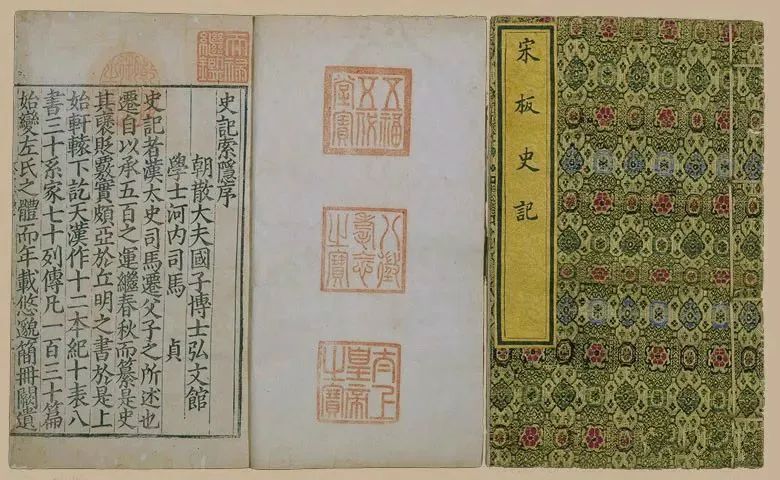 宋板史記
五福五代堂寶
八徵耄念之寶
太上皇帝之寶
天祿繼鑑
史記索隱序
朝散大夫國子博士弘文館
學士河內司馬 貞
史記者漢太史司馬遷父子之所述也
遷自以承五百之運繼春秋而纂是史
其襃貶覈實頗亞於丘明之書於是上
始軒轅下訖天漢作十二本紀十表八
書三十系家七十列傳凡一百三十篇
始變左氏之體而年載悠邈簡冊闕遺